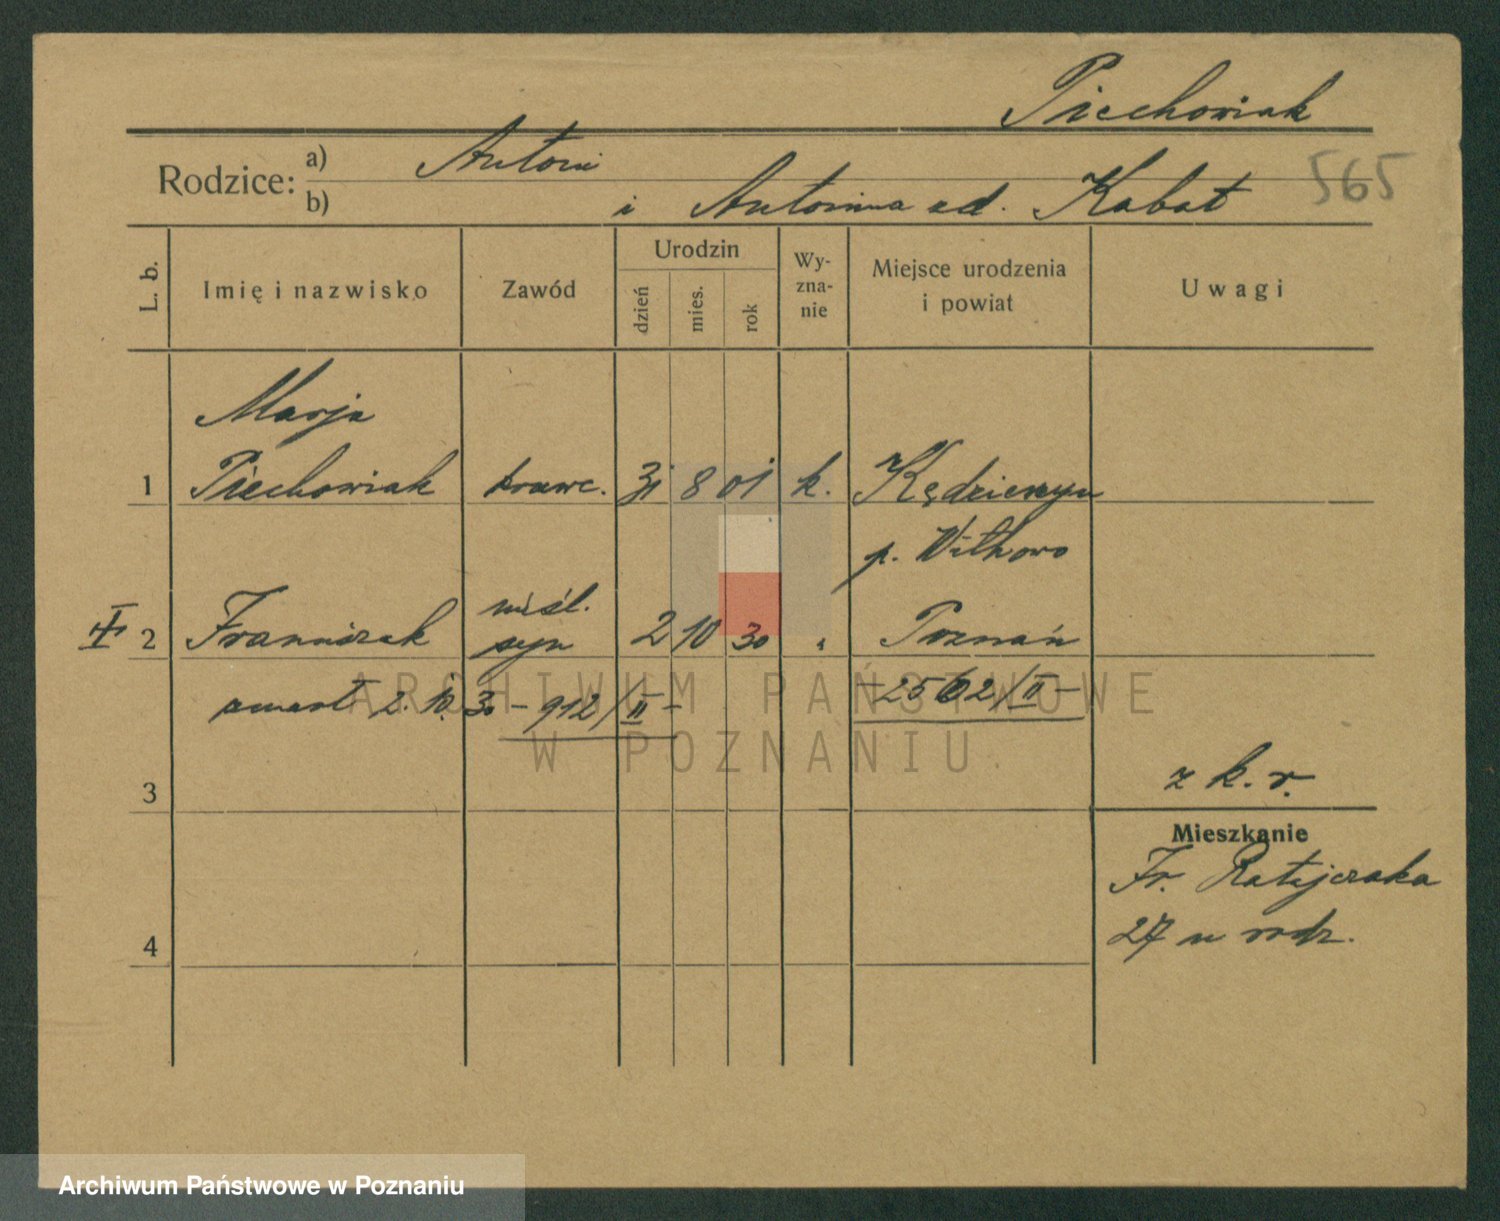 Piechowiak
Rodzice: a) Antoni
b) i Antonina ud. Kabat 565
L. b. Imię i nazwisko Zawód Urodzin dzień mies. rok Wy-zna-nie Miejsce urodzenia i powiat Uwagi
Marja
1 Piechowiak krawc. 31 8 01 k. Kędzierzyn
p. Witkowo
nieśl.
2 Franciszek syn 2 10 30 " Poznań
zmarł 2. 10. 30 - 912/II - - 2502/II -
ARCHIWUM PAŃSTWOWE
W POZNANIU
z k. r.
3
Mieszkanie
Fr. Ratajczaka
27 u rodz.
4
Archiwum Państwowe w Poznaniu